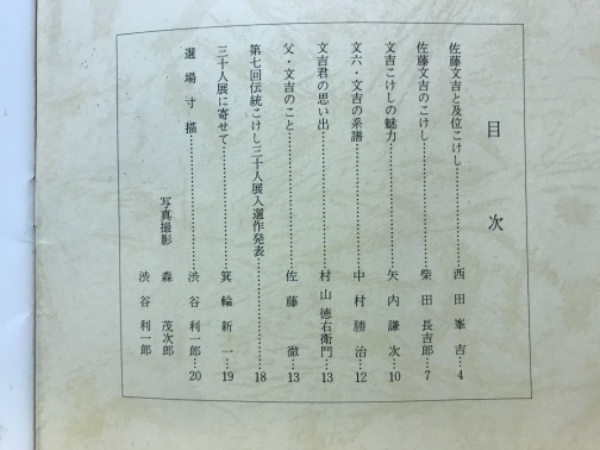 目次
佐藤文吉と及位こけし……西田峯吉…4
佐藤文吉のこけし……柴田長吉郎…7
文吉こけしの魅力……矢内謙次…10
文六・文吉の系譜……中村勝治…12
文吉君の思い出……村山徳右衛門…13
父・文吉のこと……佐藤徹…13
第七回伝統こけし三十人展入選作発表……18
三十人展に寄せて……箕輪新一…19
選場寸描……渋谷利一郎…20
写真撮影 森茂次郎
渋谷利一郎